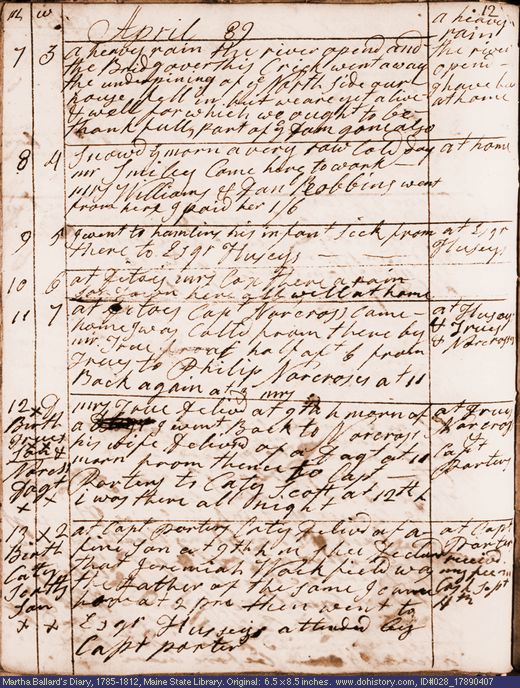 m w April 89 12
7 3 a heavy rain the river opend and
the Bridg over this Crick went away
the underpining of ye North side our
house fell in but we are yet alive
& well for which we ought to be
thankfull part of ye Dam gone also
a heavy
rain
the river
open
I have been
at home
8 4 Snowd ye morn a very raw Cold day at home
mr Smiley Came here to work
mrs Williams & Dan Robbins went
from here I paid her 1/6
9 5 I went to hamlins his infant sick from at Esqr
there to Esqr Huseys Huseys
10 6 at ditoes mrs Cox there a rain
here all well at home
11 7 at ditoes Capt Norcross Came
home I was Calld from there by
mr True half aft 6 from
Trues to Philip Norcroses at 11
Back again at 2
at Huseys
& Trues
& Norcross
12 x D mrs True delivd at 9th morn of
a I went Back to Norcross
his wife delivd of a Dagt at 11
morn from thence to Capt
Porters to Caty Scott at 12th
i was there all night
Birth
Trues
Son &
Norcros
Dagt
x x
at Trues
Norcros
&
Capt
Porters
13 x 2 at Capt Porters Caty delivd of a
fine son at 9th m shee declard
that Jeremiah Blackfield was
the Father of the same I came
home at 2 pm then went to
Esqr Husseys attended by
Capt porter
Birth
Caty 74
Scotts
Son
x x
at Capt
Porters
receivd
Sept
Martha Ballard's Diary, 1785-1812, Maine State Library. Original: 6.5 x 8.5 inches. www.dohistory.com, ID#028_17890407